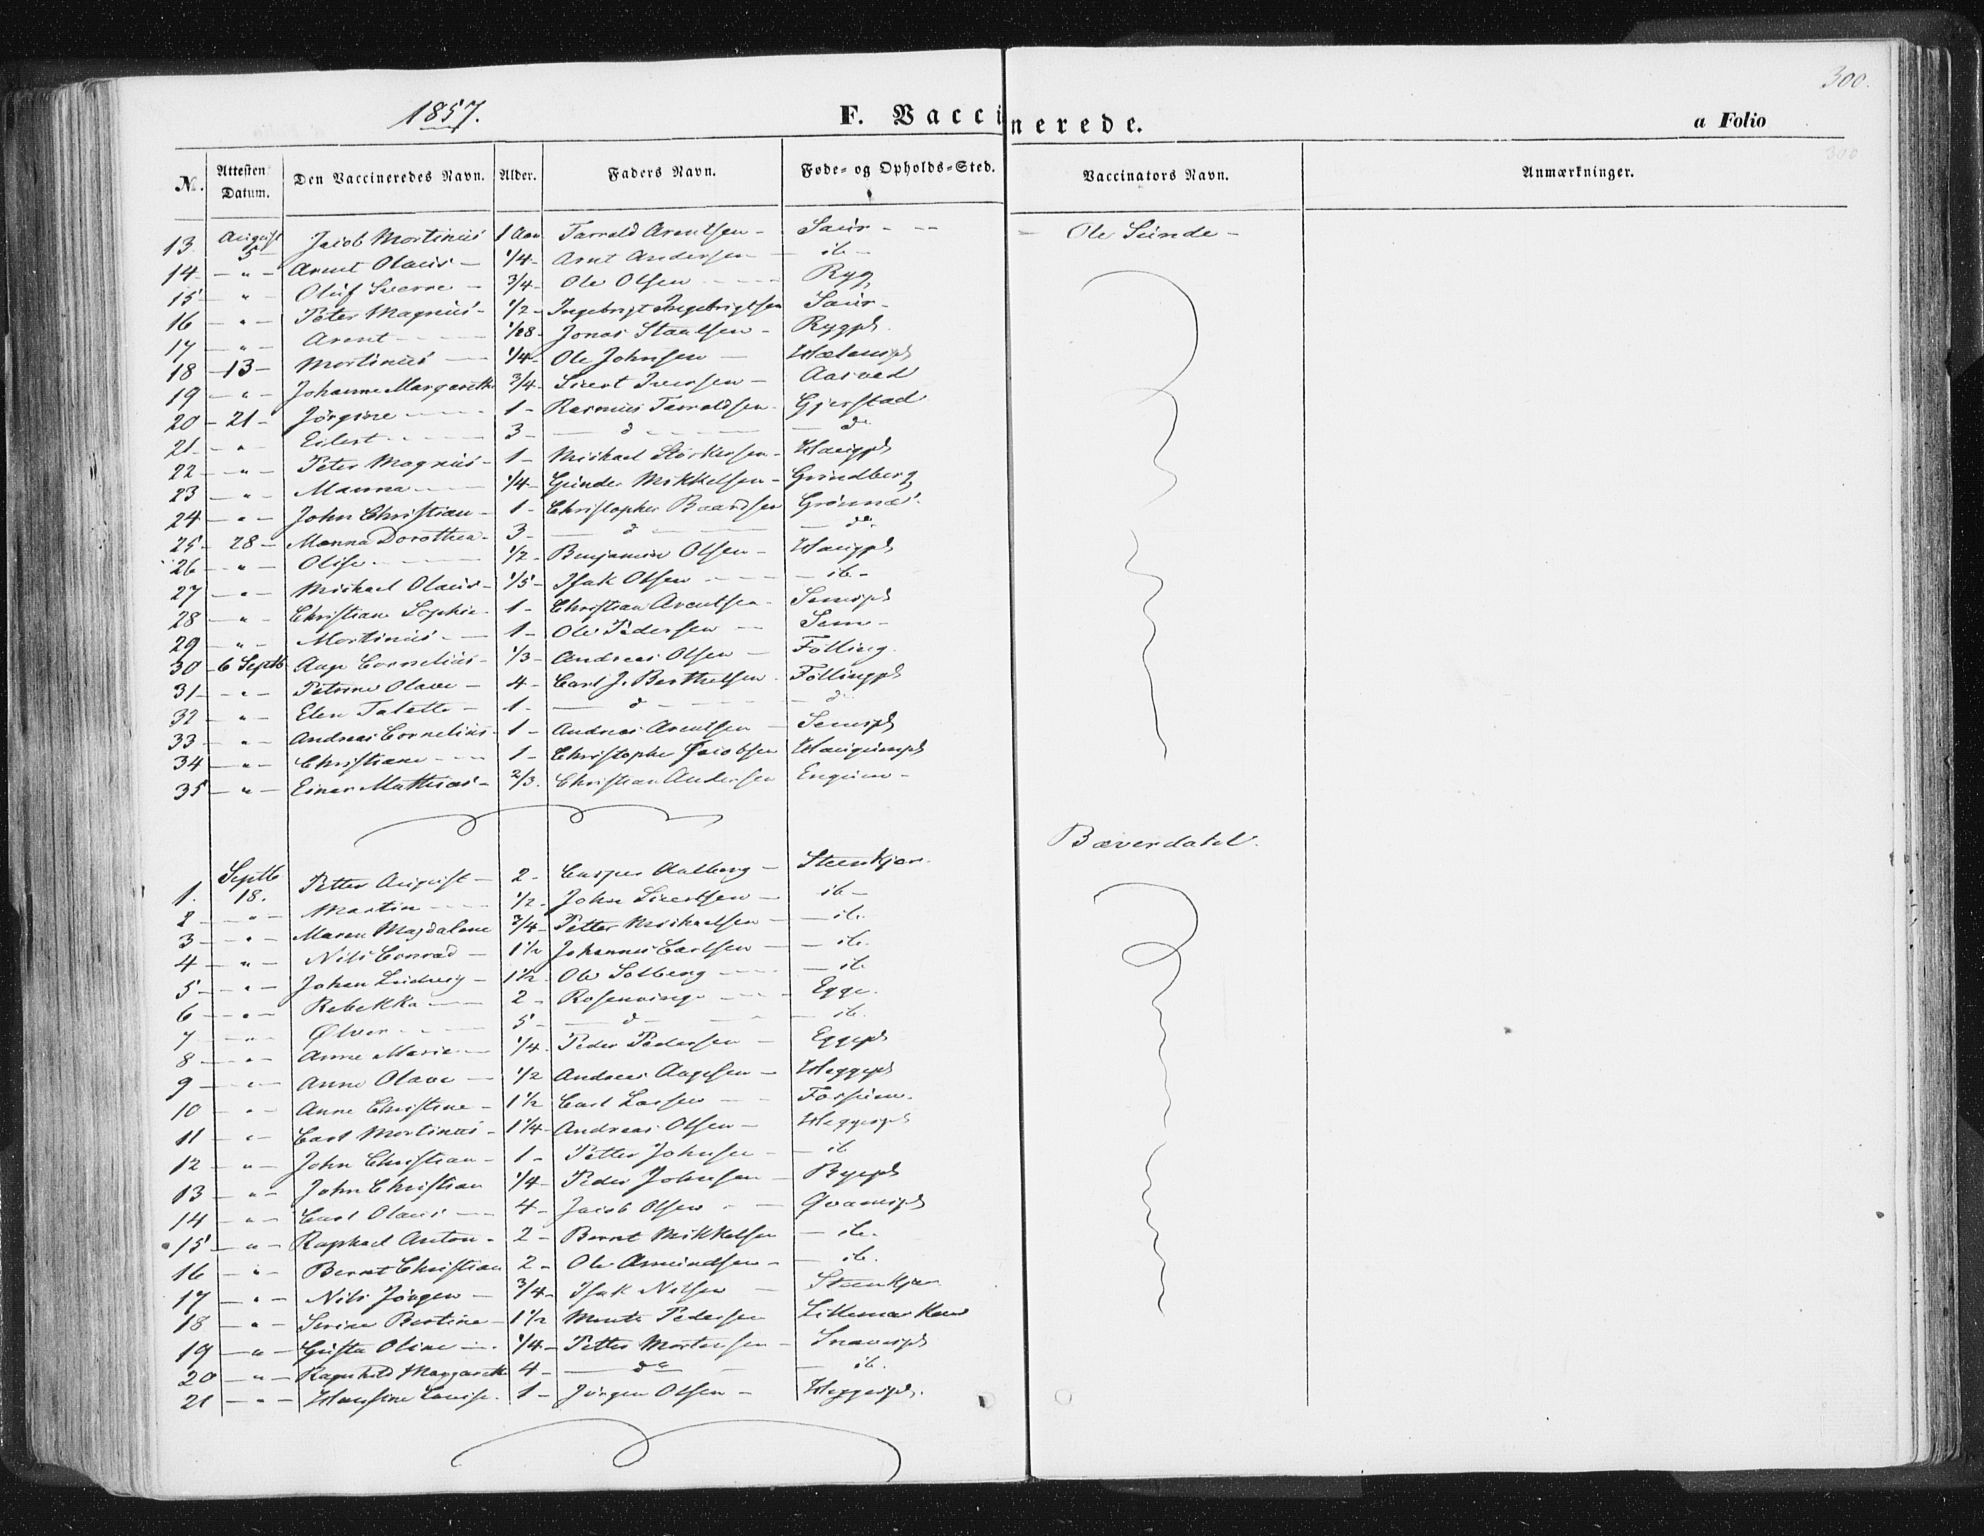 300.
1857.
F. Vaccinerede.
a Folio
300
No. Attesten Datum. Den Vaccineredes Navn. Alder. Faders Navn. Føde- og Opholds-Sted. Vaccinators Navn. Anmærkninger.
13 August 5 Jacob Martinus 1 Aar Tarrald Arentsen - Saur - - Ole Sunde -
14 - " - Arent Olaus - 1/4 - Arnt Andersen - ib -
15 - " - Oluf Sverre - 3/4 - Ole Olsen - Ryg
16 - " - Peter Magnus - 1/2 - Ingebrigt Ingebrigtsen Saur -
17 - " - Arent - Jonas Staalsen - Rygpl.
18 - 13 - Martinus - 1/4 - Ole Johnsen -
19 - " - Johanne Margareth 3/4 - Sivert Iversen - Aasved
20 - 21 - Jörgine - 1 - Rasmus Tarraldsen - Gjerstad
21 - " - Eilert - 3 - d - do
22 - " - Peter Magnus - 1 - Michael Störkersen - Haugpl
23 - " - Manna - 1/4 - Gunder Mikkelsen - Grindberg
24 - " - John Christian - 1 - Christopher Baardsen Grönnæs.
25 - 28 - Manna Dorothea - 3 - d - do
26 - " - Olise - 1/2 - Benjamin Olsen - Haugpl
27 - " - Michael Olaus - 1/5 - Isak Olsen - ib -
28 - " - Christian Sophie - 1 - Christian Arentsen - Semspl
29 - " - Martinus - 1 - Ole Pedersen - Sem -
30 - 6 Septb Aage Cornelius - 1/3 - Andreas Olsen - Følling.
31 - " - Petrine Olave - 4 - Carl J. Berthelsen - Føllingpl
32 - " - Elen Talette - 1 - d - d
33 - " - Andreas Cornelius - 1 - Andreas Arentsen - Semspl
34 - " - Christiane - 1 - Christopher Jacobsen Haugumpl
35 - " - Einar Mathias - 2/3. Christian Andersen -
Bæverdahl.
1. Septb 18. Petter August - 2 - Casper Aalberg - Steenkjær.
2 - " - Martin - 1/2 - John Sivertsen - ib -
3 - " - Maren Magdalene 3/4 - Petter Michaelsen - ib.
4 - " - Nils Conrad - 1 1/2 Johannes Carlsen - ib.
5 - " - Johan Ludvig - 1 1/2 - Ole Solberg - ib
6 - " - Rebekka - 2 - Rosenvinge - Egge.
7 - " - Ølver - 5 - d - ib.
8 - " - Anne Marie - 1/4 - Peder Pedersen - Eggepl
9 - " - Anne Olave - 1/2 Andreas Aagesen - Heggepl
10 - " - Anne Christine - 1 1/2 Carl Larsen - Forsum.
11 - " - Carl Martinus - 1 1/4 - Andreas Olsen - Heggepl
12 - " - John Christian - 1 - Petter Johnsen - ib
13 - " - John Christian 1/4 - Peder Johnsen - Byepl
14 - " - Carl Olaus - 4 - Jacob Olsen - Qvamspl
15 - " - Raphael Anton - 2 - Bernt Mikkelsen - ib.
16 - " - Bernt Christian 2 - Ole Amundsen - ib.
17 - " - Nils Jörgen - 3/4 - Isak Nilsen - Steenkjær
18 - " - Serine Bertine - 1 1/2 Pedersen
19 - " - Gusta Oline - 1/4 - Petter Mortensen -
20 - " - Ragnhild Margareth 4 - do - ib.
21 - " - Hansine Louise - 1 - Jörgen Olsen - Heggepl.